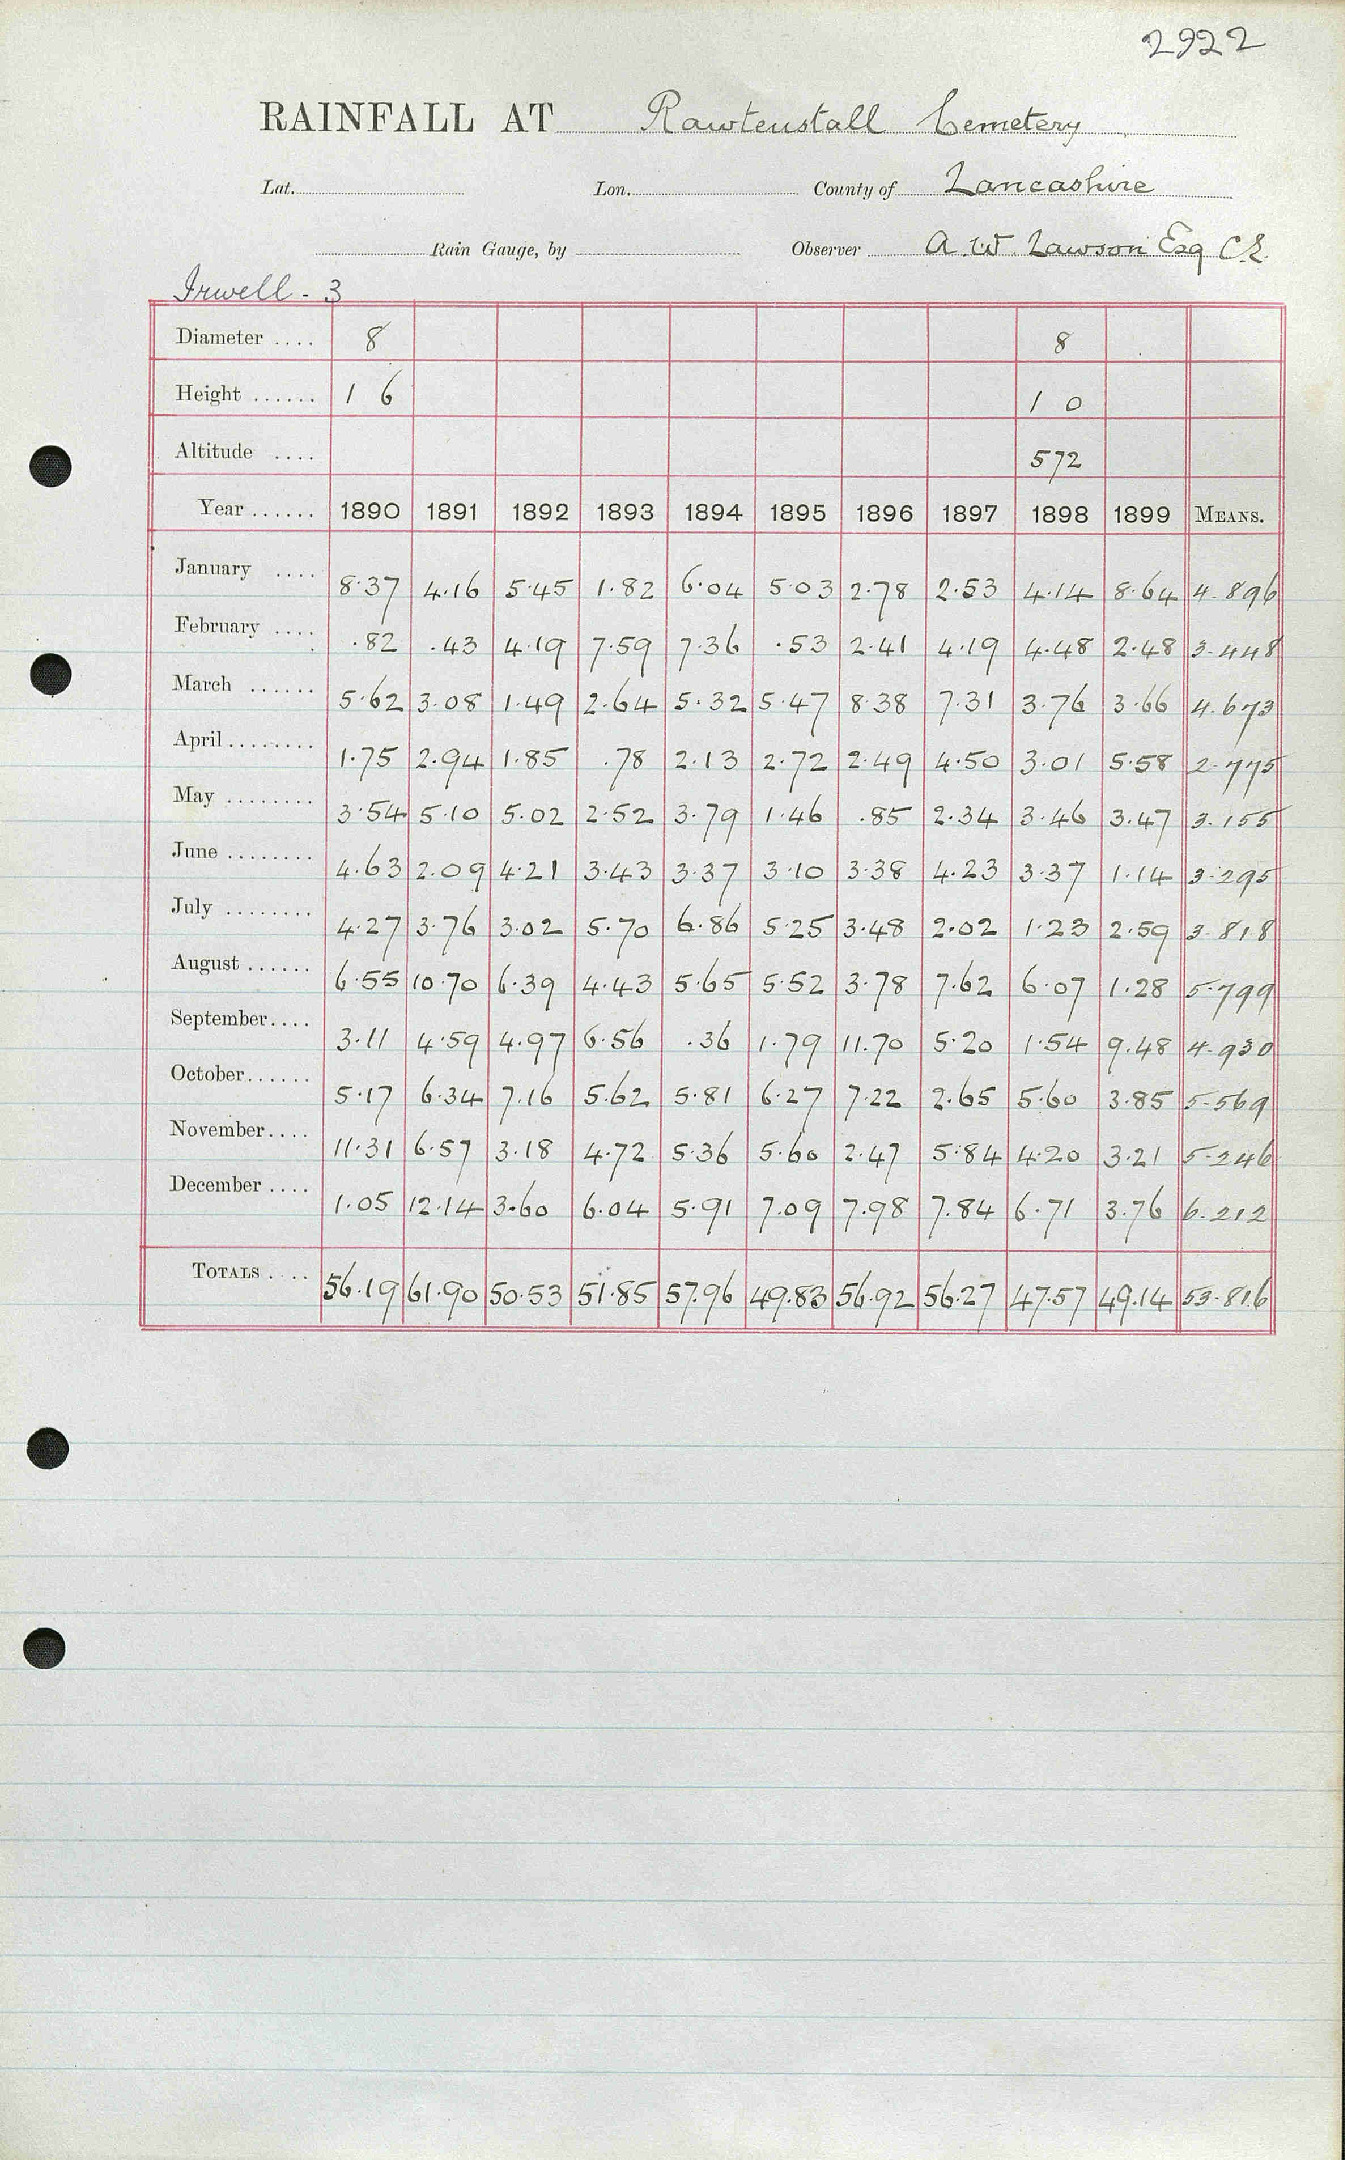 2922
RAINFALL AT Rawtenstall Cemetery
Lat. Lon. County of Lancashire
Rain Gauge, by Observer A. W. Lawson Esq C.E.
Irwell - 3
Diameter .... 8 8
Height ...... 1 6 1 0
Altitude .... 572
Year ...... 1890 1891 1892 1893 1894 1895 1896 1897 1898 1899 MEANS.
January .... 8.37 4.16 5.45 1.82 6.04 5.03 2.78 2.53 4.14 8.64 4.896
February .... .82 .43 4.19 7.59 7.36 .53 2.41 4.19 4.48 2.48 3.448
March ...... 5.62 3.08 1.49 2.64 5.32 5.47 8.38 7.31 3.76 3.66 4.673
April ........ 1.75 2.94 1.85 .78 2.13 2.72 2.49 4.50 3.01 5.58 2.775
May ........ 3.54 5.10 5.02 2.52 3.79 1.46 .85 2.34 3.46 3.47 3.155
June ........ 4.63 2.09 4.21 3.43 3.37 3.10 3.38 4.23 3.37 1.14 3.295
July ........ 4.27 3.76 3.02 5.70 6.86 5.25 3.48 2.02 1.23 2.59 3.818
August ...... 6.55 10.70 6.39 4.43 5.65 5.52 3.78 7.62 6.07 1.28 5.799
September.... 3.11 4.59 4.97 6.56 .36 1.79 11.70 5.20 1.54 9.48 4.930
October...... 5.17 6.34 7.16 5.62 5.81 6.27 7.22 2.65 5.60 3.85 5.569
November.... 11.31 6.57 3.18 4.72 5.36 5.60 2.47 5.84 4.20 3.21 5.246
December .... 1.05 12.14 3.60 6.04 5.91 7.09 7.98 7.84 6.71 3.76 6.212
TOTALS .... 56.19 61.90 50.53 51.85 57.96 49.83 56.92 56.27 47.57 49.14 53.816